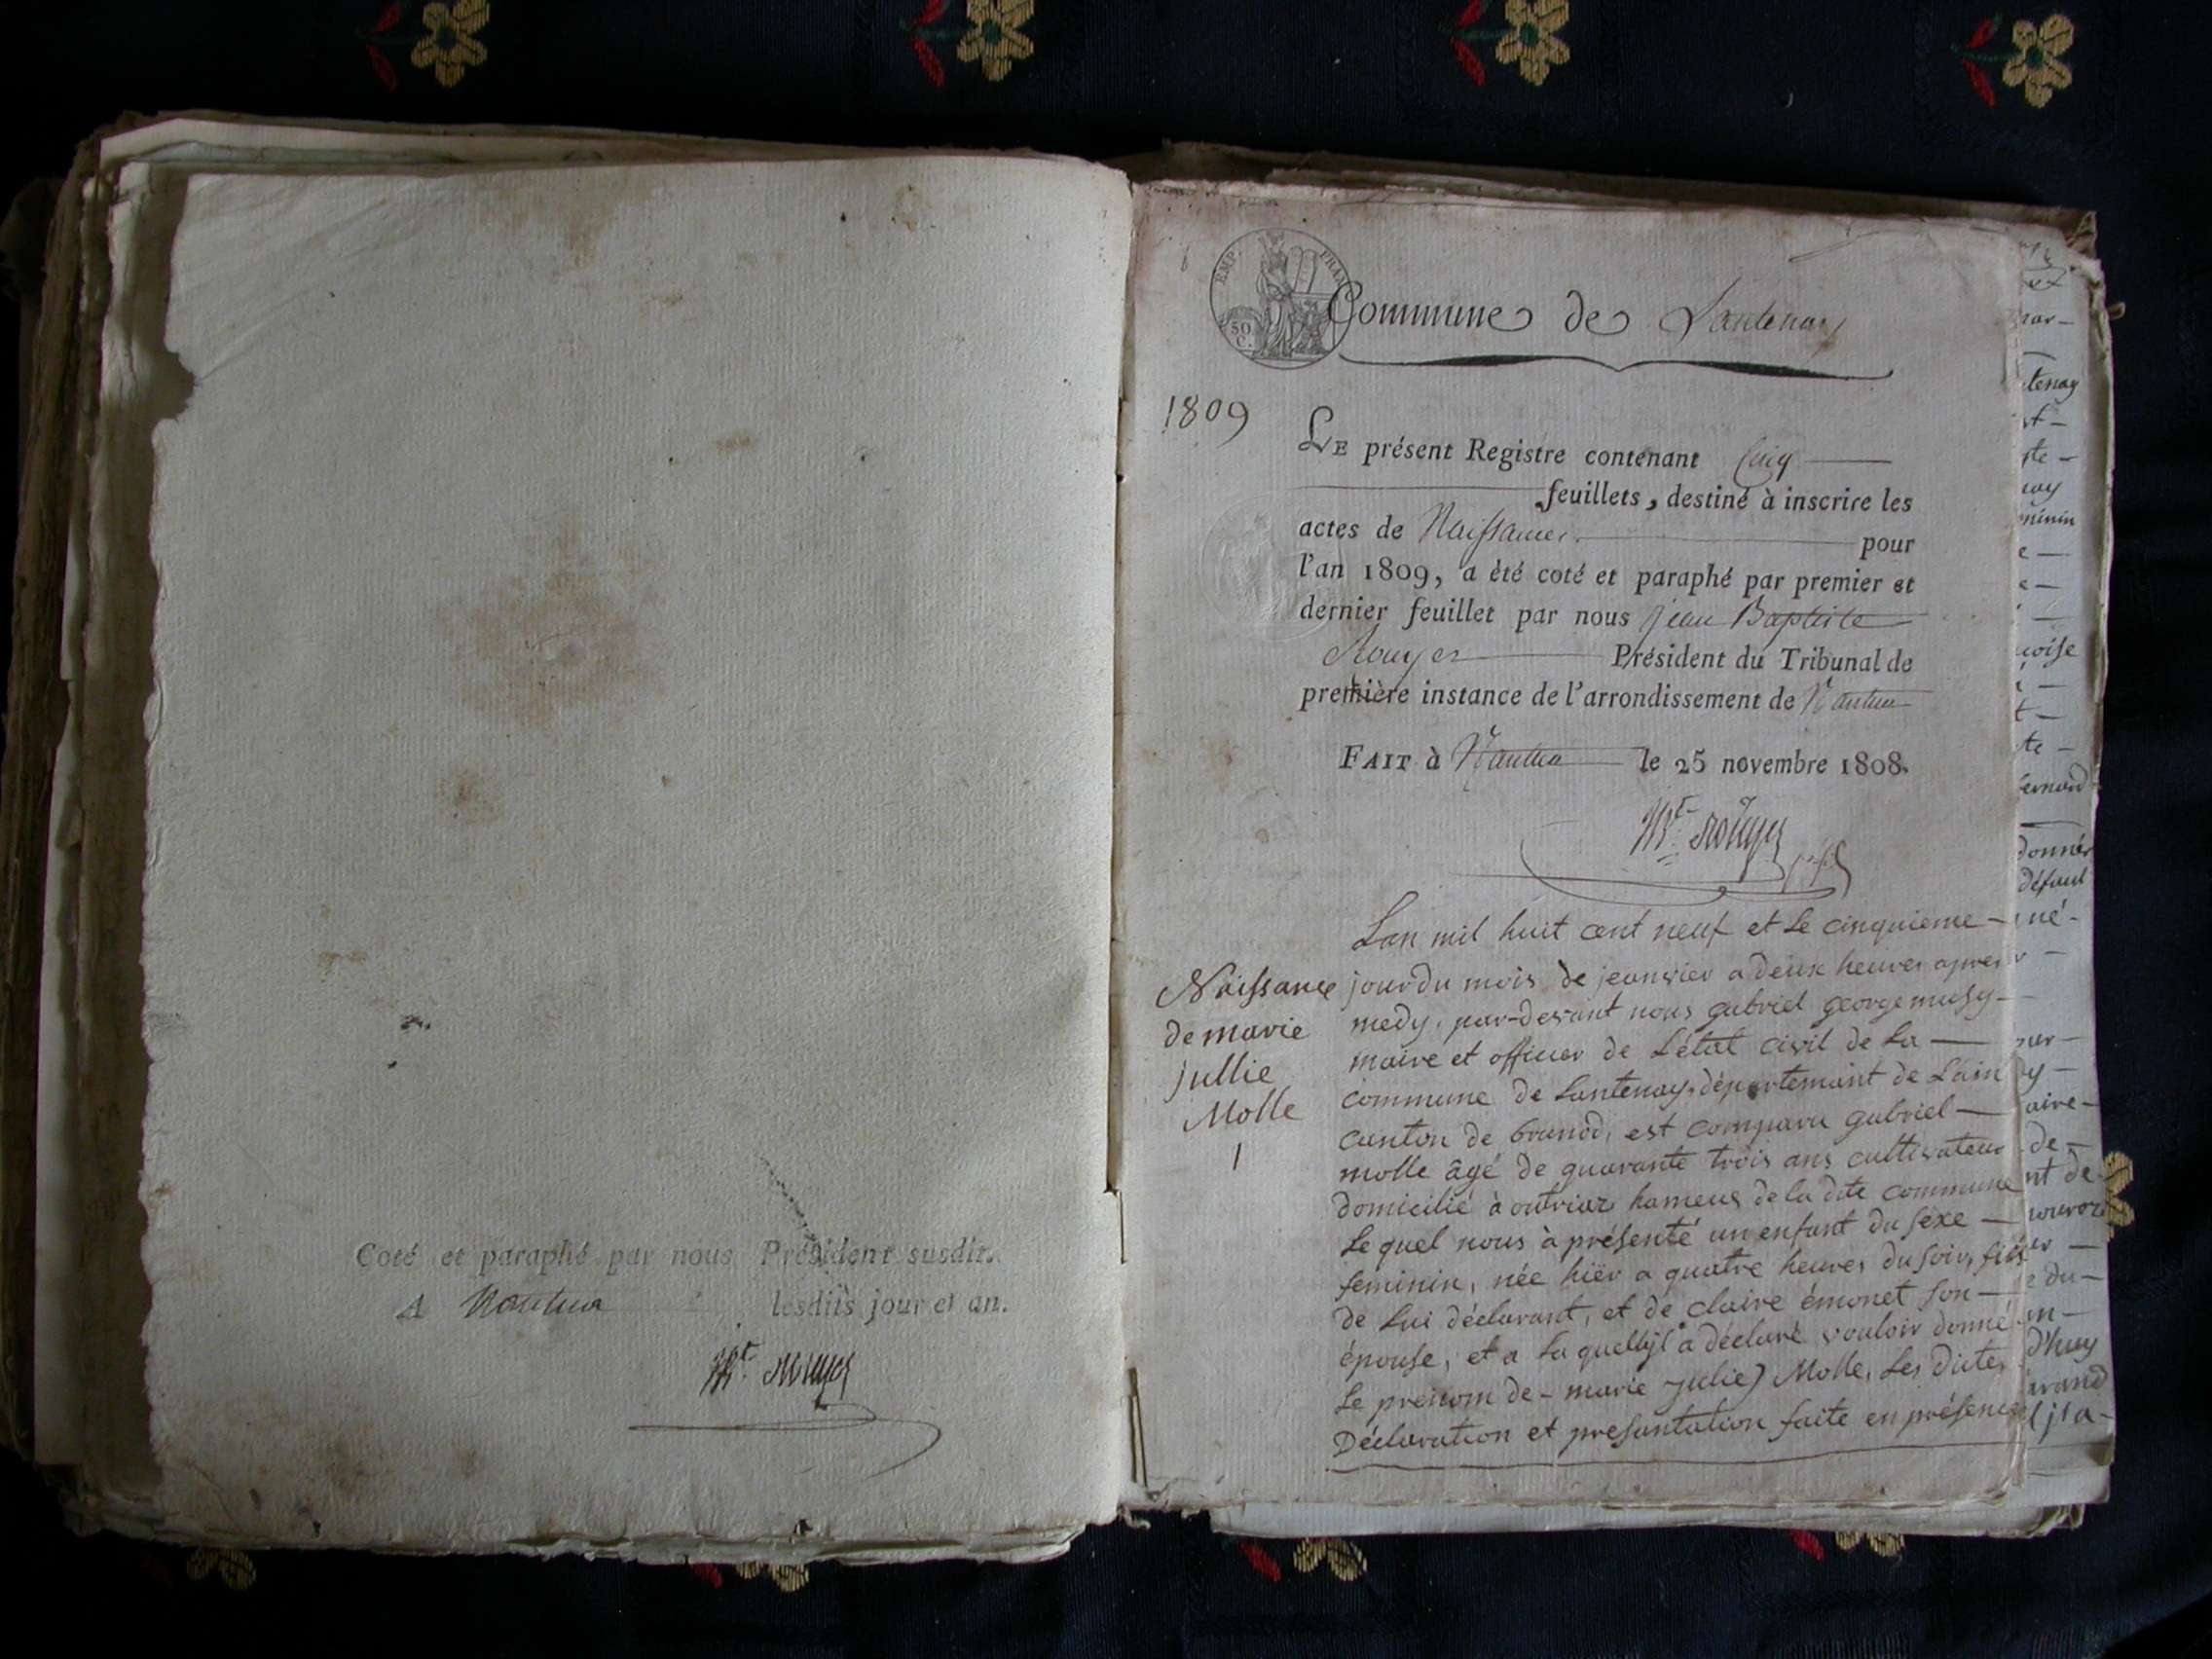 Coté et paraphé par nous Président susdit.
A Nantua lesdits jour et an.
Bte. Rouyer
EMP. FRAN.
50
C.
Commune de Lantenay
1809
LE présent Registre contenant Cinq
feuillets, destiné à inscrire les
actes de Naissances. pour
l'an 1809, a été coté et paraphé par premier et
dernier feuillet par nous jean Baptiste
Rouyer Président du Tribunal de
première instance de l'arrondissement de Nantua
FAIT à Nantua le 25 novembre 1808.
Bte. Rouyer
Naissance
de marie
jullie
Molle
1
Lan mil huit cent neuf et le cinquieme
jour du mois de jeanvier a deux heures apres
medy, par-devant nous gabriel george musy
maire et officier de l'état civil de la
commune de Lantenay, département de Lain
canton de brenod, est comparu gabriel
molle âgé de quarante trois ans cultivateur
domicilié à outriaz hameus de la dite commune
le quel nous à présenté un enfant du sexe
feminin, née hiër a quatre heures du soir, fille
de lui déclarant, et de claire émonet son
épouse, et a la quelle jl a déclaré vouloir donné
le prenom de - marie julie) Molle, les dictes
Déclaration et presantation faite en présence